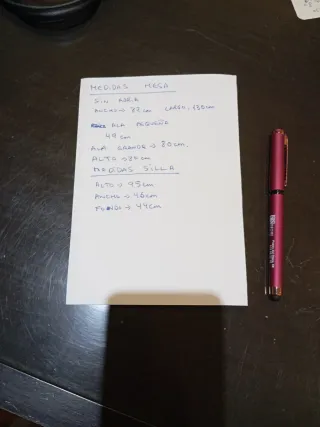 MEDIDAS MESA
SIN ABRIR
ANCHO → cm LARGO: cm
ALA PEQUEÑA
cm
ALA GRANDE → 80cm.
ALTO → cm
MEDIDAS SILLA
ALTO → 95cm
ANCHO → 46cm
FONDO → 44cm